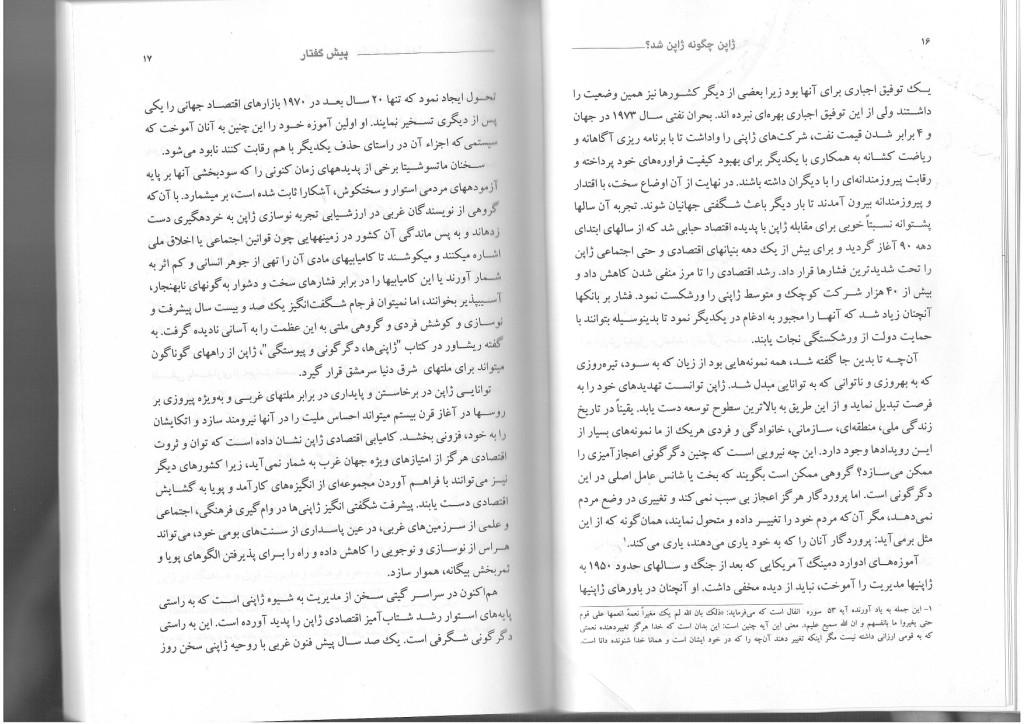 ۱۶
ژاپن چگونه ژاپن شد؟
یک توفیق اجباری برای آنها بود زیرا بعضی از دیگر کشورها نیز همین وضعیت را
داشتند ولی از این توفیق اجباری بهره‌ای نبرده اند. بحران نفتی سال ۱۹۷۳ در جهان
و ۴ برابر شدن قیمت نفت، شرکت‌های ژاپنی را واداشت تا با برنامه ریزی آگاهانه و
ریاضت کشانه به همکاری با یکدیگر برای بهبود کیفیت فراورده‌های خود پرداخته و
رقابت پیروزمندانه‌ای را با دیگران داشته باشند. در نهایت از آن اوضاع سخت، با اقتدار
و پیروزمندانه بیرون آمدند تا بار دیگر باعث شگفتی جهانیان شوند. تجربه آن سالها
پشتوانه نسبتاً خوبی برای مقابله ژاپن با پدیده اقتصاد حبابی شد که از سالهای ابتدای
دهه ۹۰ آغاز گردید و برای بیش از یک دهه بنیانهای اقتصادی و حتی اجتماعی ژاپن
را تحت شدیدترین فشارها قرار داد. رشد اقتصادی را تا مرز منفی شدن کاهش داد و
بیش از ۴۰ هزار شرکت کوچک و متوسط ژاپنی را ورشکست نمود. فشار بر بانکها
آنچنان زیاد شد که آنها را مجبور به ادغام در یکدیگر نمود تا بدینوسیله بتوانند با
حمایت دولت از ورشکستگی نجات یابند.
آن‌چه تا بدین جا گفته شد، همه نمونه‌هایی بود از زیان که به سود، تیره‌روزی
که به بهروزی و ناتوانی که به توانایی مبدل شد. ژاپن توانست تهدیدهای خود را به
فرصت تبدیل نماید و از این طریق به بالاترین سطوح توسعه دست یابد. یقیناً در تاریخ
زندگی ملی، منطقه‌ای، سازمانی، خانوادگی و فردی هریک از ما نمونه‌های بسیار از
این رویدادها وجود دارد. این چه نیرویی است که چنین دگرگونی اعجازآمیزی را
ممکن می‌سازد؟ گروهی ممکن است بگویند که بخت یا شانس عامل اصلی در این
دگرگونی است. اما پروردگار هرگز اعجاز بی سبب نمی‌کند و تغییری در وضع مردم
نمی‌دهد، مگر آن‌که مردم خود را تغییر داده و متحول نمایند، همان‌گونه که از این
مثل برمی‌آید: پروردگار آنان را که به خود یاری می‌دهند، یاری می‌کند.۱
آموزه‌های ادوارد دمینگ آمریکایی که بعد از جنگ و سالهای حدود ۱۹۵۰ به
ژاپنیها مدیریت را آموخت، نباید از دیده مخفی داشت. او آنچنان در باورهای ژاپنیها
۱- این جمله به یاد آورنده آیه ۵۳ سوره انفال است که می‌فرماید: «ذلک بان الله لم یک مغیراً نعمهً انعمها علی قوم
حتی یغیروا ما بانفسهم و ان الله سمیع علیم». معنی این آیه چنین است: این بدان است که خدا هرگز تغییردهنده نعمتی
که به قومی ارزانی داشته نیست مگر اینکه تغییر دهند آن‌چه را که در خود ایشان است و همانا خدا شنونده دانا است.
پیش گفتار
۱۷
تحول ایجاد نمود که تنها ۲۰ سال بعد در ۱۹۷۰ بازارهای اقتصاد جهانی را یکی
پس از دیگری تسخیر نمایند. او اولین آموزه خود را این چنین به آنان آموخت که
سیستمی که اجزاء آن در راستای حذف یکدیگر با هم رقابت کنند نابود می‌شود.
سخنان ماتسوشیتا برخی از پدیدههای زمان کنونی را که سودبخشی آنها بر پایه
آزمودههای مردمی استوار و سختکوش، آشکارا ثابت شده است، بر میشمارد. با آن‌که
گروهی از نویسندگان غربی در ارزشیابی تجربه نوسازی ژاپن به خردهگیری دست
زدهاند و به پس ماندگی آن کشور در زمینههایی چون قوانین اجتماعی یا اخلاق ملی
اشاره میکنند و میکوشند تا کامیابیهای مادی آن را تهی از جوهر انسانی و کم اثر به
شمار آورند یا این کامیابیها را در برابر فشارهای سخت و دشوار به‌گونهای نابهنجار،
آسیبپذیر بخوانند، اما نمیتوان فرجام شگفت‌انگیز یک صد و بیست سال پیشرفت و
نوسازی و کوشش فردی و گروهی ملتی به این عظمت را به آسانی نادیده گرفت. به
گفته ریشاور در کتاب "ژاپنی‌ها، دگرگونی و پیوستگی"، ژاپن از راههای گوناگون
میتواند برای ملتهای شرق دنیا سرمشق قرار گیرد.
توانایی ژاپن در برخاستن و پایداری در برابر ملتهای غربی و به‌ویژه پیروزی بر
روسها در آغاز قرن بیستم میتواند احساس ملیت را در آنها نیرومند سازد و اتکایشان
را به خود، فزونی بخشد. کامیابی اقتصادی ژاپن نشان داده است که توان و ثروت
اقتصادی هرگز از امتیازهای ویژه جهان غرب به شمار نمی‌آید، زیرا کشورهای دیگر
نیز می‌توانند با فراهم آوردن مجموعه‌ای از انگیزه‌های کارآمد و پویا به گشایش
اقتصادی دست یابند. پیشرفت شگفتی انگیز ژاپنی‌ها در وام‌گیری فرهنگی، اجتماعی
و علمی از سرزمین‌های غربی، در عین پاسداری از سنت‌های بومی خود، می‌تواند
هراس از نوسازی و نوجویی را کاهش داده و راه را برای پذیرفتن الگوهای پویا و
ثمربخش بیگانه، هموار سازد.
هم‌اکنون در سراسر گیتی سخن از مدیریت به شیوه ژاپنی است که به راستی
پایه‌های استوار رشد شتاب‌آمیز اقتصادی ژاپن را پدید آورده است. این به راستی
دگرگونی شگرفی است. یک صد سال پیش فنون غربی با روحیه ژاپنی سخن روز